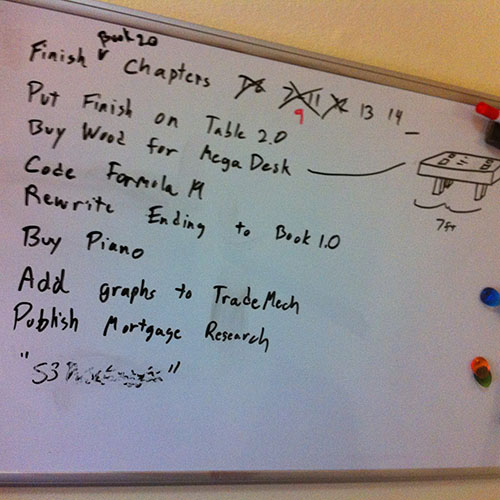 Book 2.0
Finish Chapters 11 13 14 _
9
Put Finish on Table 2.0
Buy Wood for Mega Desk
7ft
Code Formula M
Rewrite Ending to Book 1.0
Buy Piano
Add graphs to TradeMech
Publish Mortgage Research
"S3 "